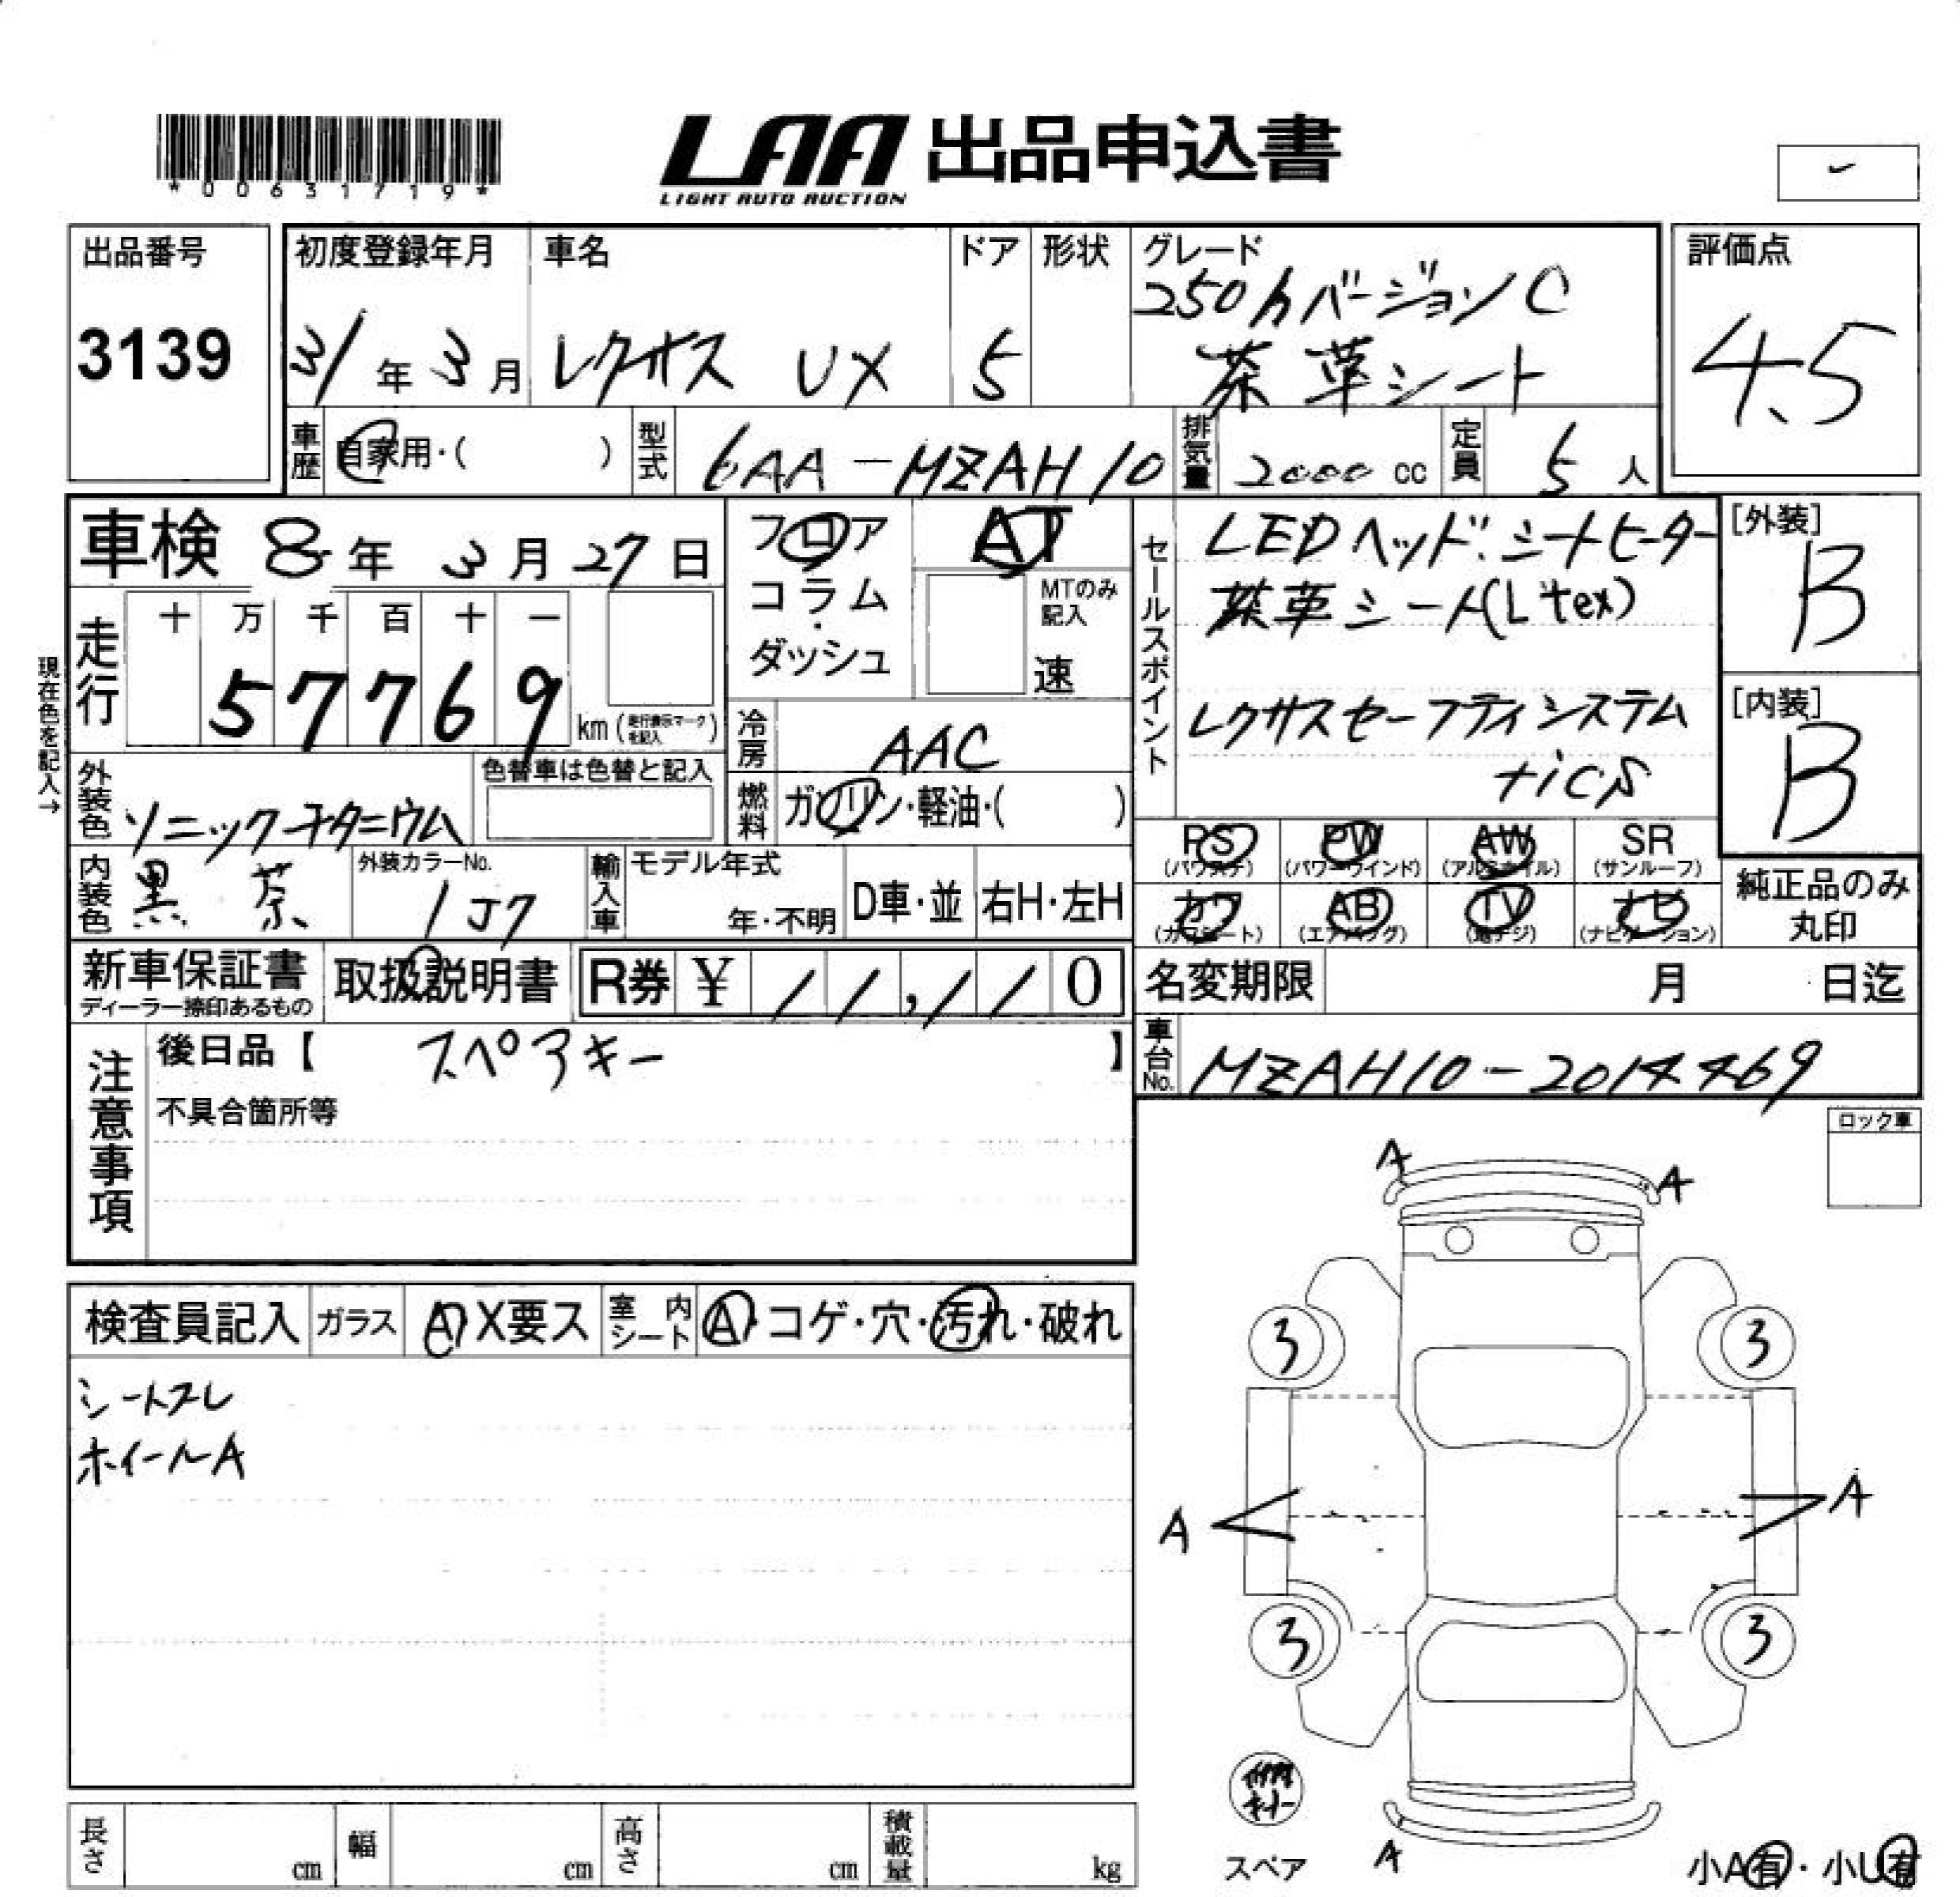 *00631719*
LAA 出品申込書
LIGHT AUTO AUCTION
出品番号
3139
初度登録年月
31年3月
車名
レクサス UX
ドア
5
形状
グレード
250hバージョンC
茶革シート
評価点
4.5
車歴
自家用・( )
型式
6AA-MZAH10
排気量
2000 cc
定員
5 人
車検 8年 3月 27日
現在色を記入→
走行
十 万 千 百 十 一
57769
km (走行表示マークを記入)
フロア
コラム
・
ダッシュ
AT
MTのみ記入
速
冷房
AAC
燃料
ガソリン・軽油・( )
外装色
ソニックチタニウム
色替車は色替と記入
内装色
黒 茶
外装カラーNo.
1J7
輸入車
モデル年式
年・不明
D車・並
右H・左H
セールスポイント
LEDヘッド.シートヒーター
茶革シート(L'tex)
レクサスセーフティシステム
+iCS
[外装]
B
[内装]
B
PS
(パワステ)
PW
(パワーウインド)
AW
(アルミホイル)
SR
(サンルーフ)
カワ
(カワシート)
AB
(エアバッグ)
TV
(地デジ)
ナビ
(ナビゲーション)
純正品のみ
丸印
新車保証書
ディーラー捺印あるもの
取扱説明書
R券 ¥ //,//0
名変期限
月 日迄
車台No.
MZAH10-2014469
注意事項
後日品【 スペアキー 】
不具合箇所等
ロック車
検査員記入
ガラス
A X要ス
室内シート
A・コゲ・穴・汚れ・破れ
シートスレ
ホイールA
A
A
3
3
A
A
3
3
スペア
A
小A有・小U有
長さ
cm
幅
cm
高さ
cm
積載量
kg